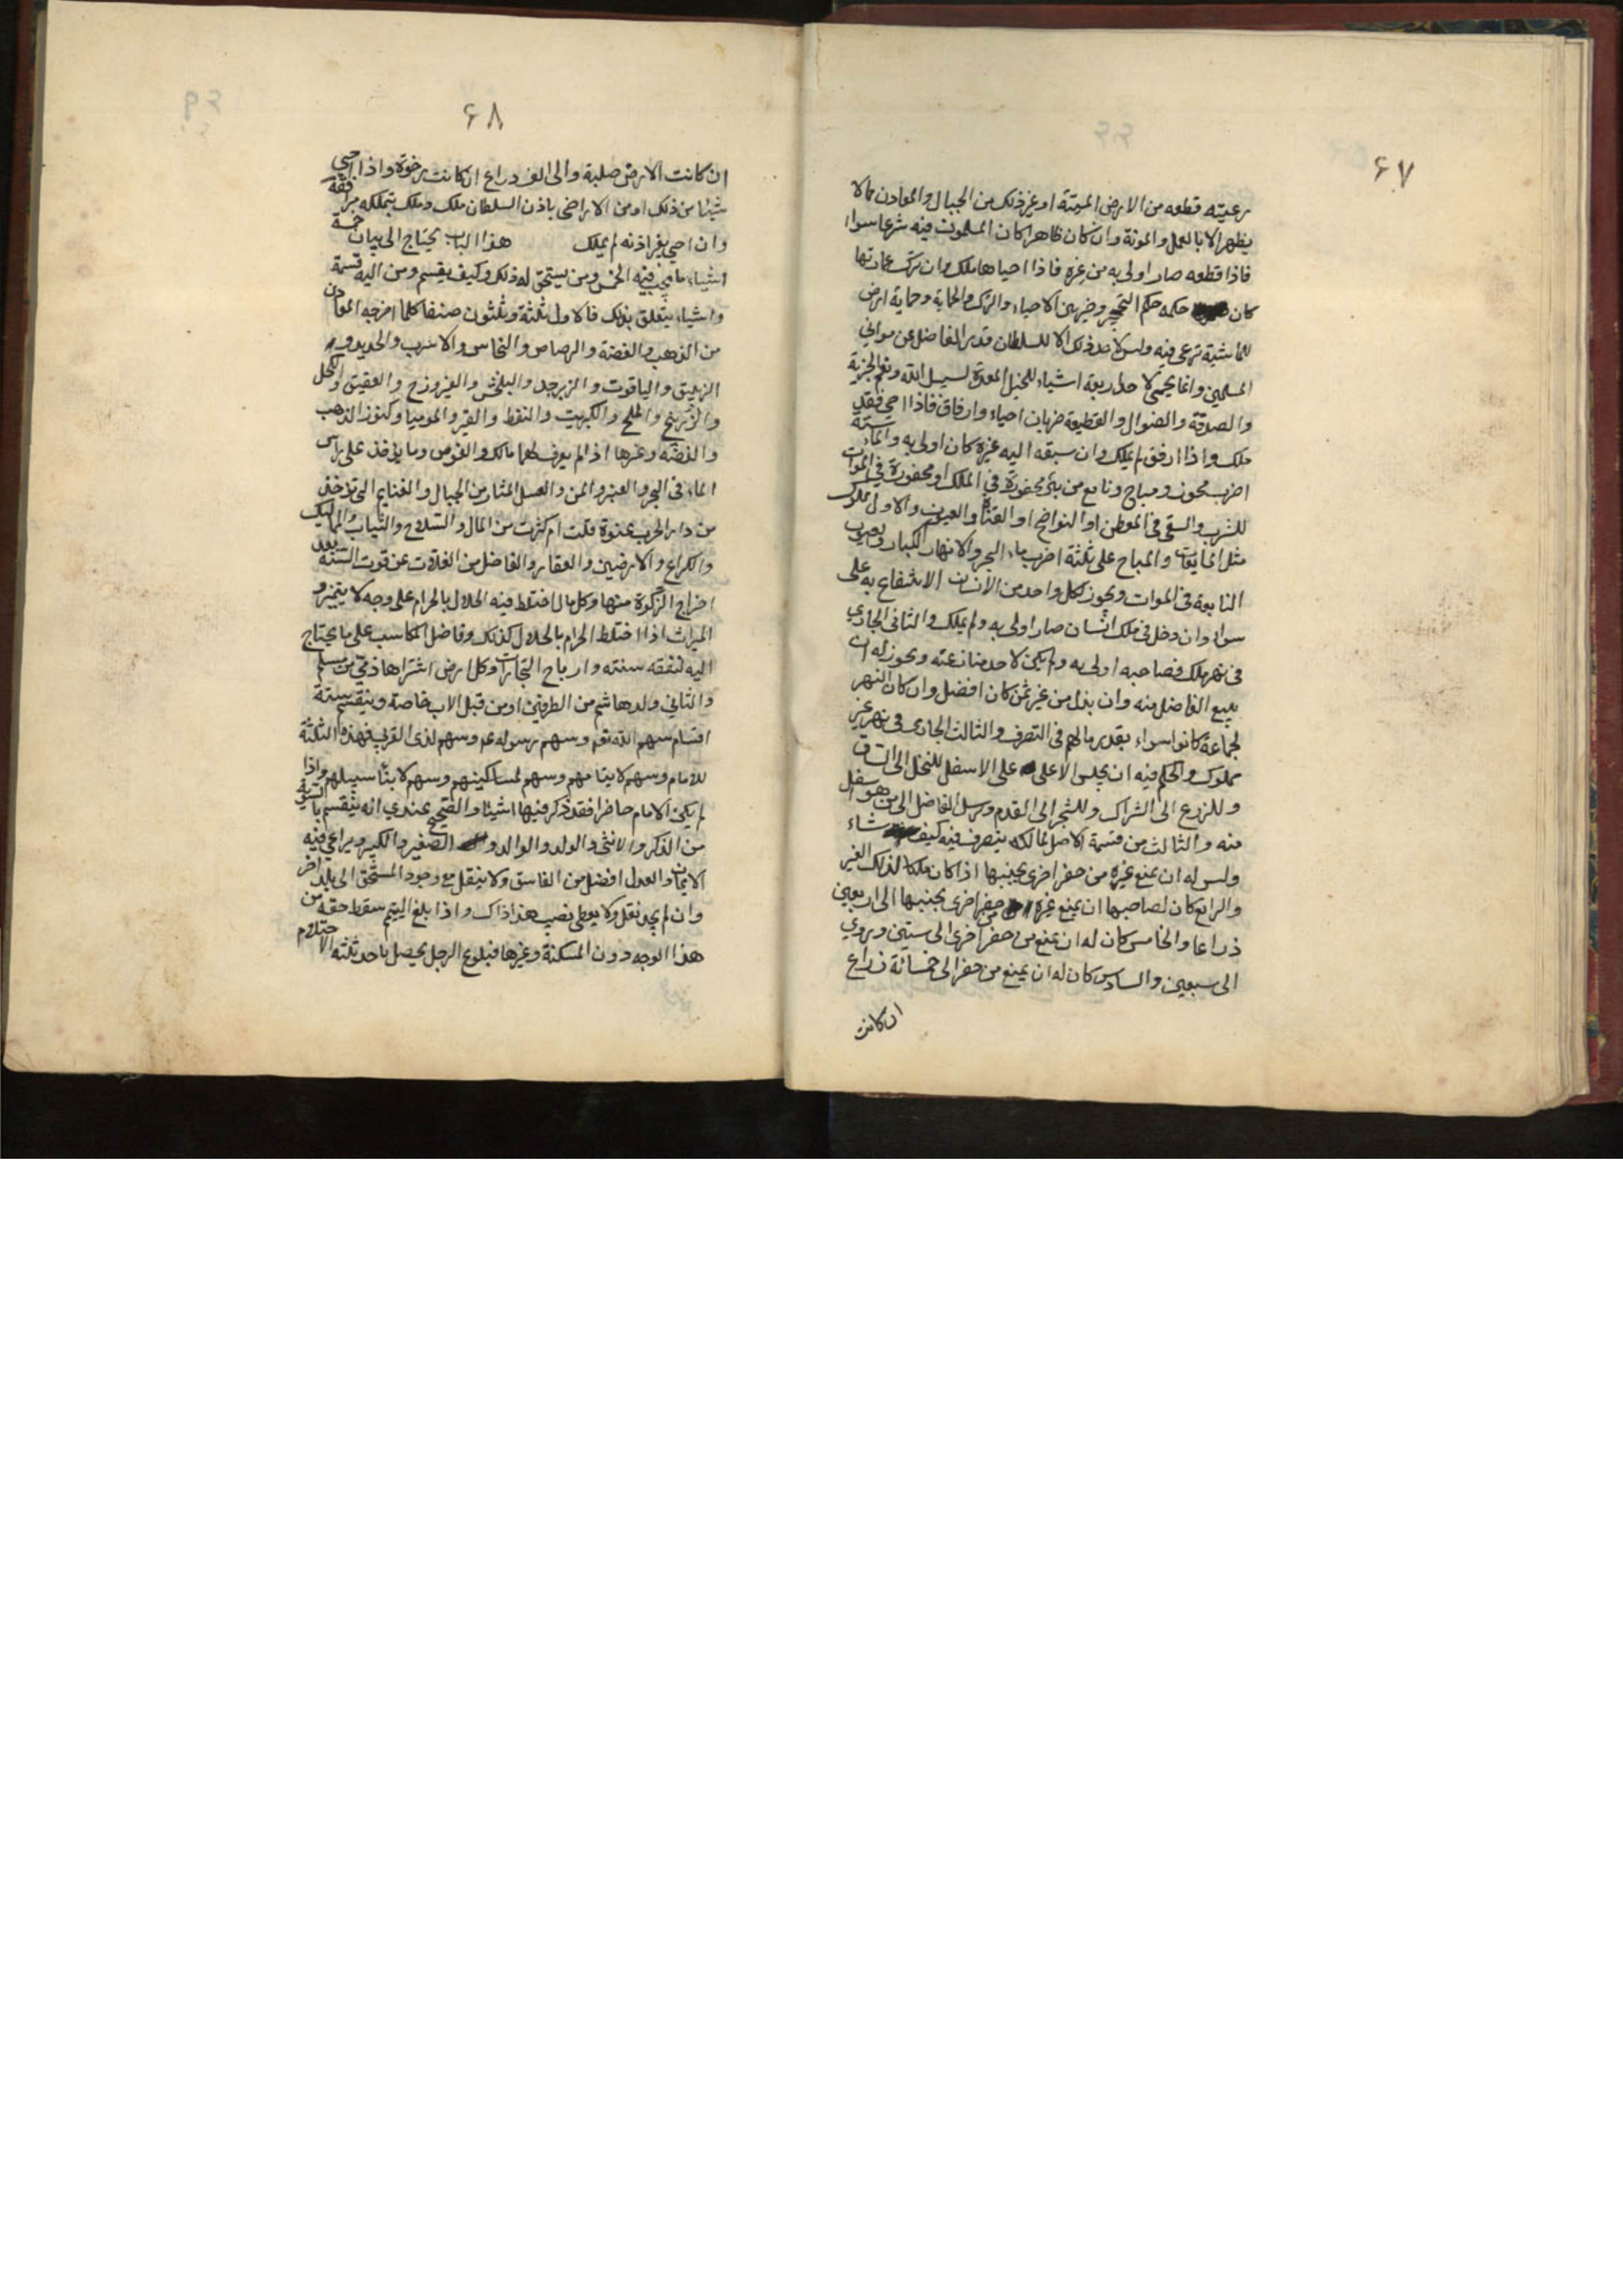 ۶۷
رعيته قطعه من الارض الميتة او غير ذلك من الجبال والمعادن مما لا
يظهر الا بالعمل والمونة وان كان ظاهرا كان المسلمون فيه شرعا سواء
فاذا قطعه صار اولى به من غيره فاذا احياها ملك وان ترك عمارتها
كان حكمه حكم التحجير وخير بين الاحياء والترك والحماية وحماية ارض
للماشية ترعى فيه وليس لاحد ذلك الا للسلطان قدر الفاضل عن مواشي
المسلمين وانما يحمى لاحد اربعة اشياء للخيل المعدة لسبيل الله ونعم الجزية
والصدقة والضوال والقطيعة ضربان احياء وارفاق فاذا احيى فقد
ملك واذا ارفق لم يملك وان سبقه اليه غيره كان اولى به والماء ستة
اضرب محوز ومباح ونابع من بئر محفورة في الملك او محفورة في الموات
للشرب والسقى في المعطن او النواضح او القناة والعيون والاول مملوك
مثل المايعات والمباح على ثلثة اضرب ماء البحر والانهار الكبار والعيون
النابعة في الموات ويجوز لكل واحد من الانسان الانتفاع به على
سواء وان دخل في ملك انسان صار اولى به ولم يملك والثانى الجاري
في نهر ملك فصاحبه اولى به ولم يكن لاحد منازعته ويجوز له ان
يبيع الفاضل منه وان بذل من غير ثمن كان افضل وان كان النهر
لجماعة كانوا سواء بقدر مالهم في التصرف والثالث الجارى في نهر غير
مملوك والحكم فيه ان يحبس الاعلى على الاسفل للنخل الى الساق
وللزرع الى الشراك وللشجر الى القدم ويرسل الفاضل الى من هو اسفل
منه والثالث من قسمة الاصل لمالكه يتصرف فيه كيف شاء
وليس له ان يمنع غيره من حفر اخرى بجنبها اذا كان ملكا لذلك الغير
والرابع كان لصاحبها ان يمنع غيره من حفر اخرى بجنبها الى اربعين
ذراعا والخامس كان له ان يمنع من حفر اخرى الى ستين وروي
الى سبعين والسادس كان له ان يمنع من حفر الى خمسائة ذراع
ان كانت
۶۸
ان كانت الارض صلبة والى الف ذراع ان كانت رخوة واذا احيى
شيئا من ذلك او من الاراضى باذن السلطان ملك وملك بتملكه مرافقه
وان احيى بغير اذنه لم يملك هذا الباب يحتاج الى بيان خمسة
اشياء ما يجب فيه الخمس ومن يستحق له ذلك وكيف يقسم ومن اليه قسمة
واشياء يتعلق بذلك فالاول ثلثة وثلثون صنفا كلما اخرجه المعادن
من الذهب والفضة والرصاص والنحاس والاسرب والحديد و
الزيبق والياقوت والزبرجد والبلخش والفيروزج والعقيق والكحل
والزرنيخ والملح والكبريت والنفط والقير والموميا وكنوز الذهب
والفضة وغيرها اذا لم يعرف لهما مالك والغوص وما يوخذ على راس
الماء في البحر والعنبر والمن والعسل المثار من الجبال والغنايم التي توخذ
من دار الحرب عنوة قلت ام كثرت من المال والسلاح والثياب والمماليك
والكراع والارضين والعقار والفاضل من الغلات عن قوت السنة بعد
اخراج الزكوة منها وكل مال اختلط فيه الحلال بالحرام على وجه لا يتميز و
الميراث اذا اختلط الحرام بالحلال كذلك وفاضل المكاسب على ما يحتاج
اليه لنفقة سنته وارباح التجارات وكل ارض اشتراها ذمي من مسلم
والثاني ولد هاشم من الطرفين او من قبل الاب خاصة وينقسم ستة
اقسام سهم الله تع وسهم رسوله عم وسهم لذى القربى فهذه الثلثة
للامام وسهم لايتامهم وسهم لمساكينهم وسهم لابناء سبيلهم واذا
لم يكن الامام حاضرا فقد ذكر فيها اشياء والصحيح عندي انه يقسم بالسوية
من الذكر والانثى والولد والوالد و الصغير والكبير ويراعى فيه
الايمان والعدل افضل من الفاسق ولا ينقل مع وجود المستحق الى بلد اخر
وان لم يجد نقل ولا يعطى نصيب هذا ذاك واذا بلغ اليتيم سقط حقه من
هذا الوجه دون المسكنة وغيرها فبلوغ الرجل يحصل باحد ثلثة الاحتلام